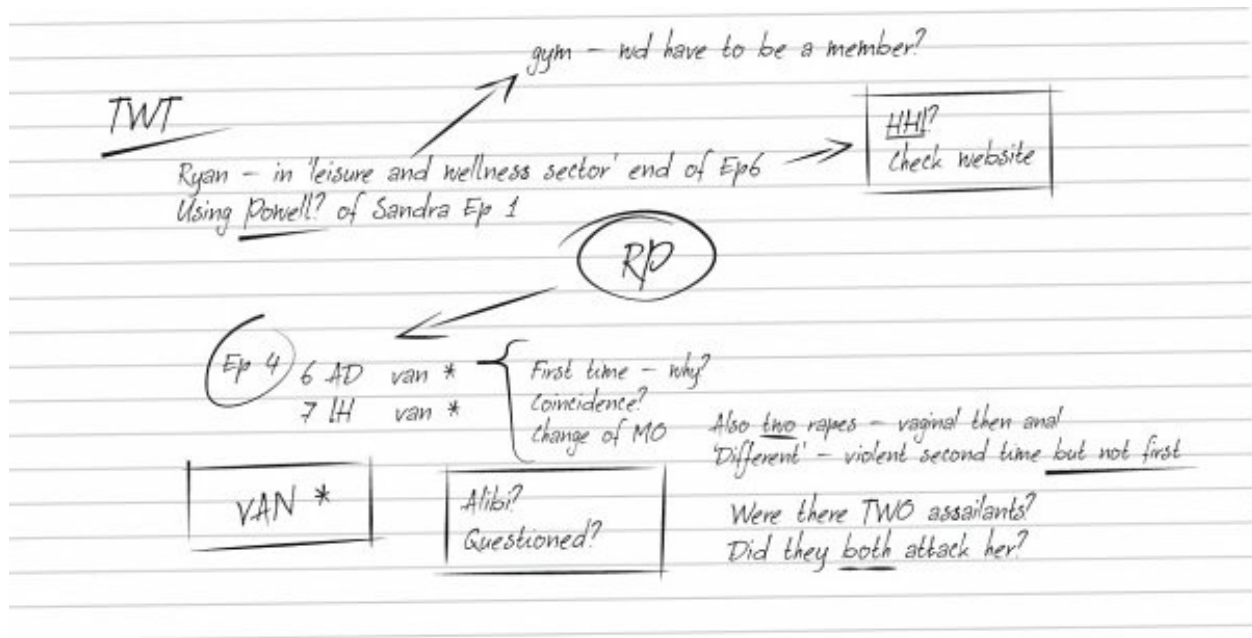 gym – wd have to be a member?
TWT
HHI?
Check website
Ryan – in 'leisure and wellness sector' end of Ep6
Using Powell? of Sandra Ep 1
RP
Ep 4
6 AD van *
7 LH van *
First time – why?
Coincidence?
Change of MO
Also two rapes – vaginal then anal
'Different' – violent second time but not first
VAN *
Alibi?
Questioned?
Were there TWO assailants?
Did they both attack her?